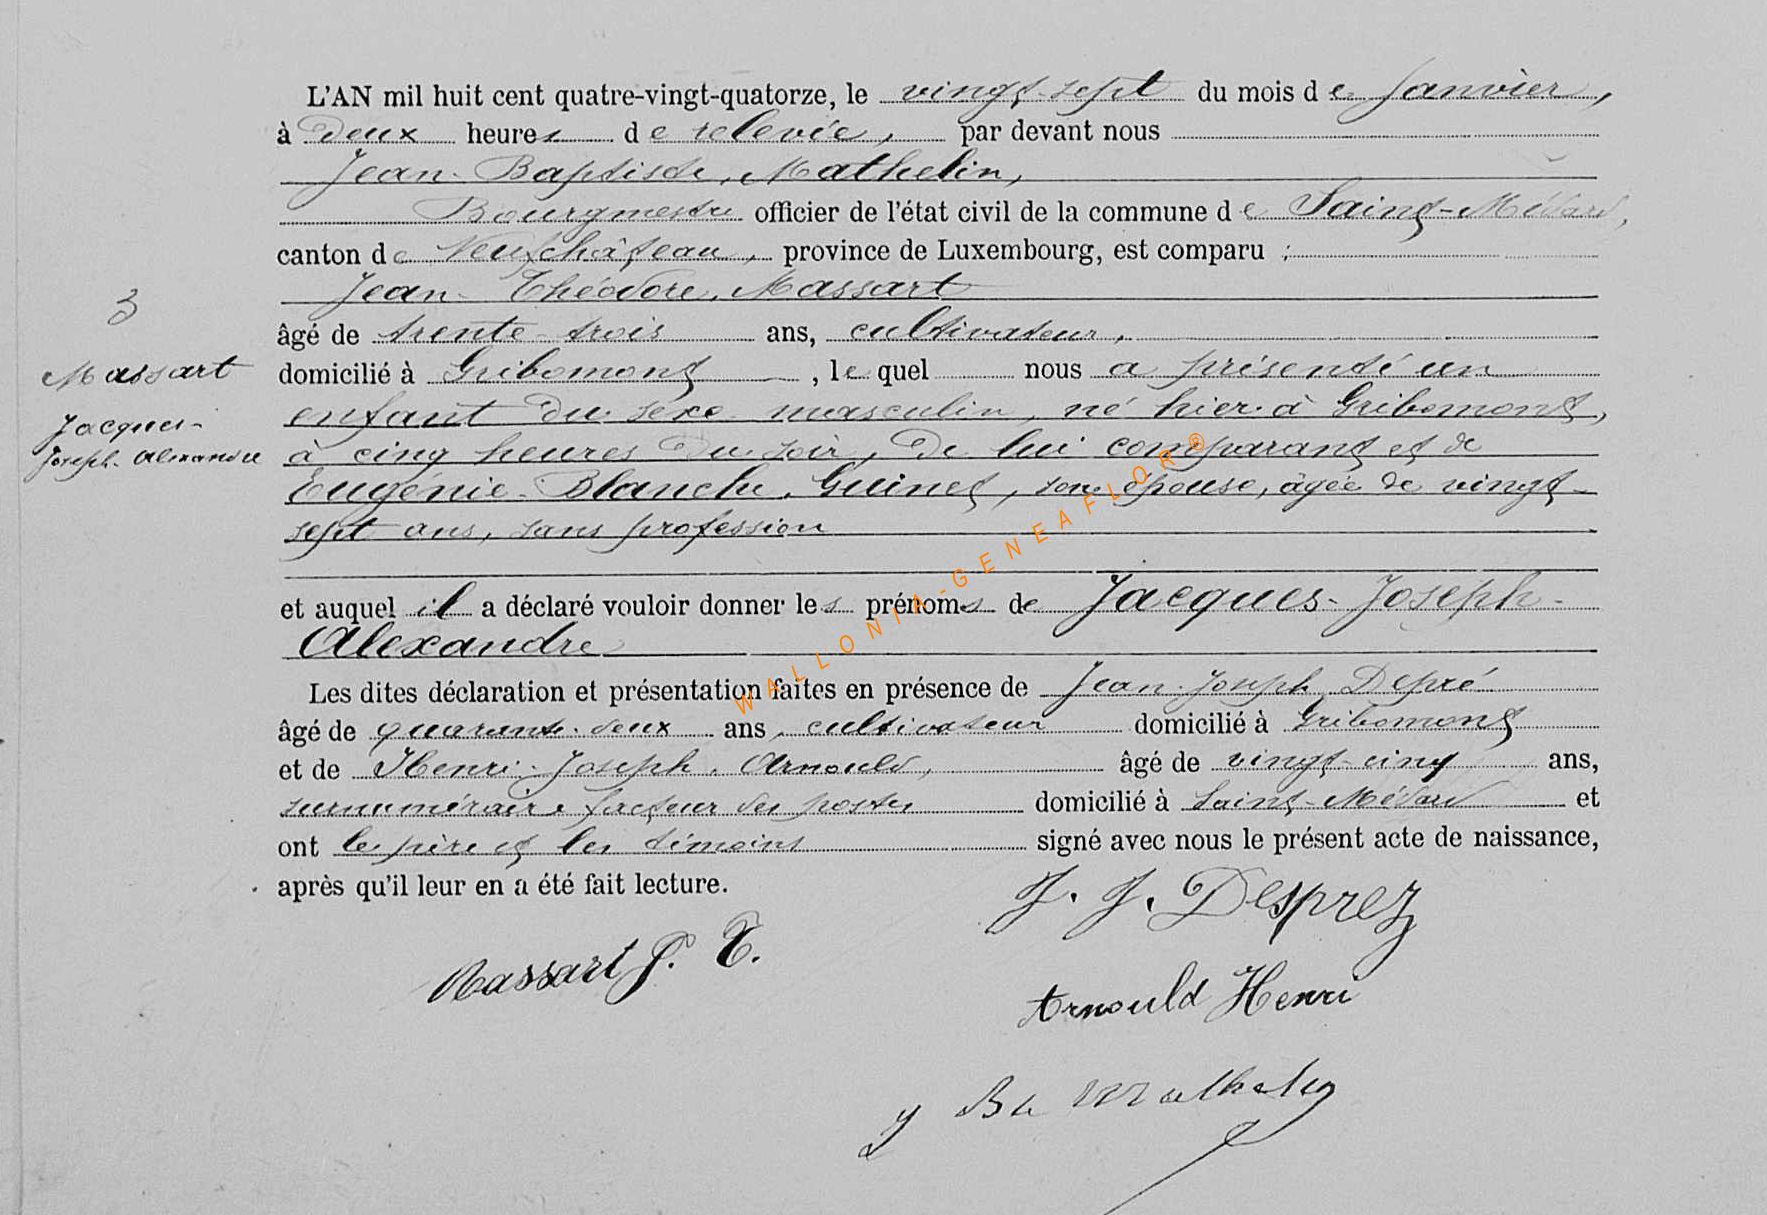 L'AN mil huit cent quatre-vingt-quatorze, le vingt-sept du mois de Janvier,
à deux heures de relevée, par devant nous
Jean-Baptiste Mathelin,
Bourgmestre officier de l'état civil de la commune de Saint-Médard,
canton de Neufchâteau, province de Luxembourg, est comparu :
Jean-Théodore Massart
âgé de trente-trois ans, cultivateur,
domicilié à Gribomont, lequel nous a présenté un
enfant du sexe masculin, né hier à Gribomont,
à cinq heures du soir, de lui comparant et de
Eugénie-Blanche Guinet, son épouse, âgée de vingt-
sept ans, sans profession
et auquel il a déclaré vouloir donner les prénoms de Jacques-Joseph-
Alexandre
Les dites déclaration et présentation faites en présence de Jean-Joseph Depré
âgé de quarante-deux ans, cultivateur domicilié à Gribomont
et de Henri-Joseph Arnould, âgé de vingt-cinq ans,
surnuméraire facteur des postes domicilié à Saint-Médard et
ont le père et les témoins signé avec nous le présent acte de naissance,
après qu'il leur en a été fait lecture.
3
Massart
Jacques-
Joseph-Alexandre
J. J. Desprez
Massart J. T.
Arnould Henri
J Bte Mathelin
WALLONIA-GENEAFLOR®